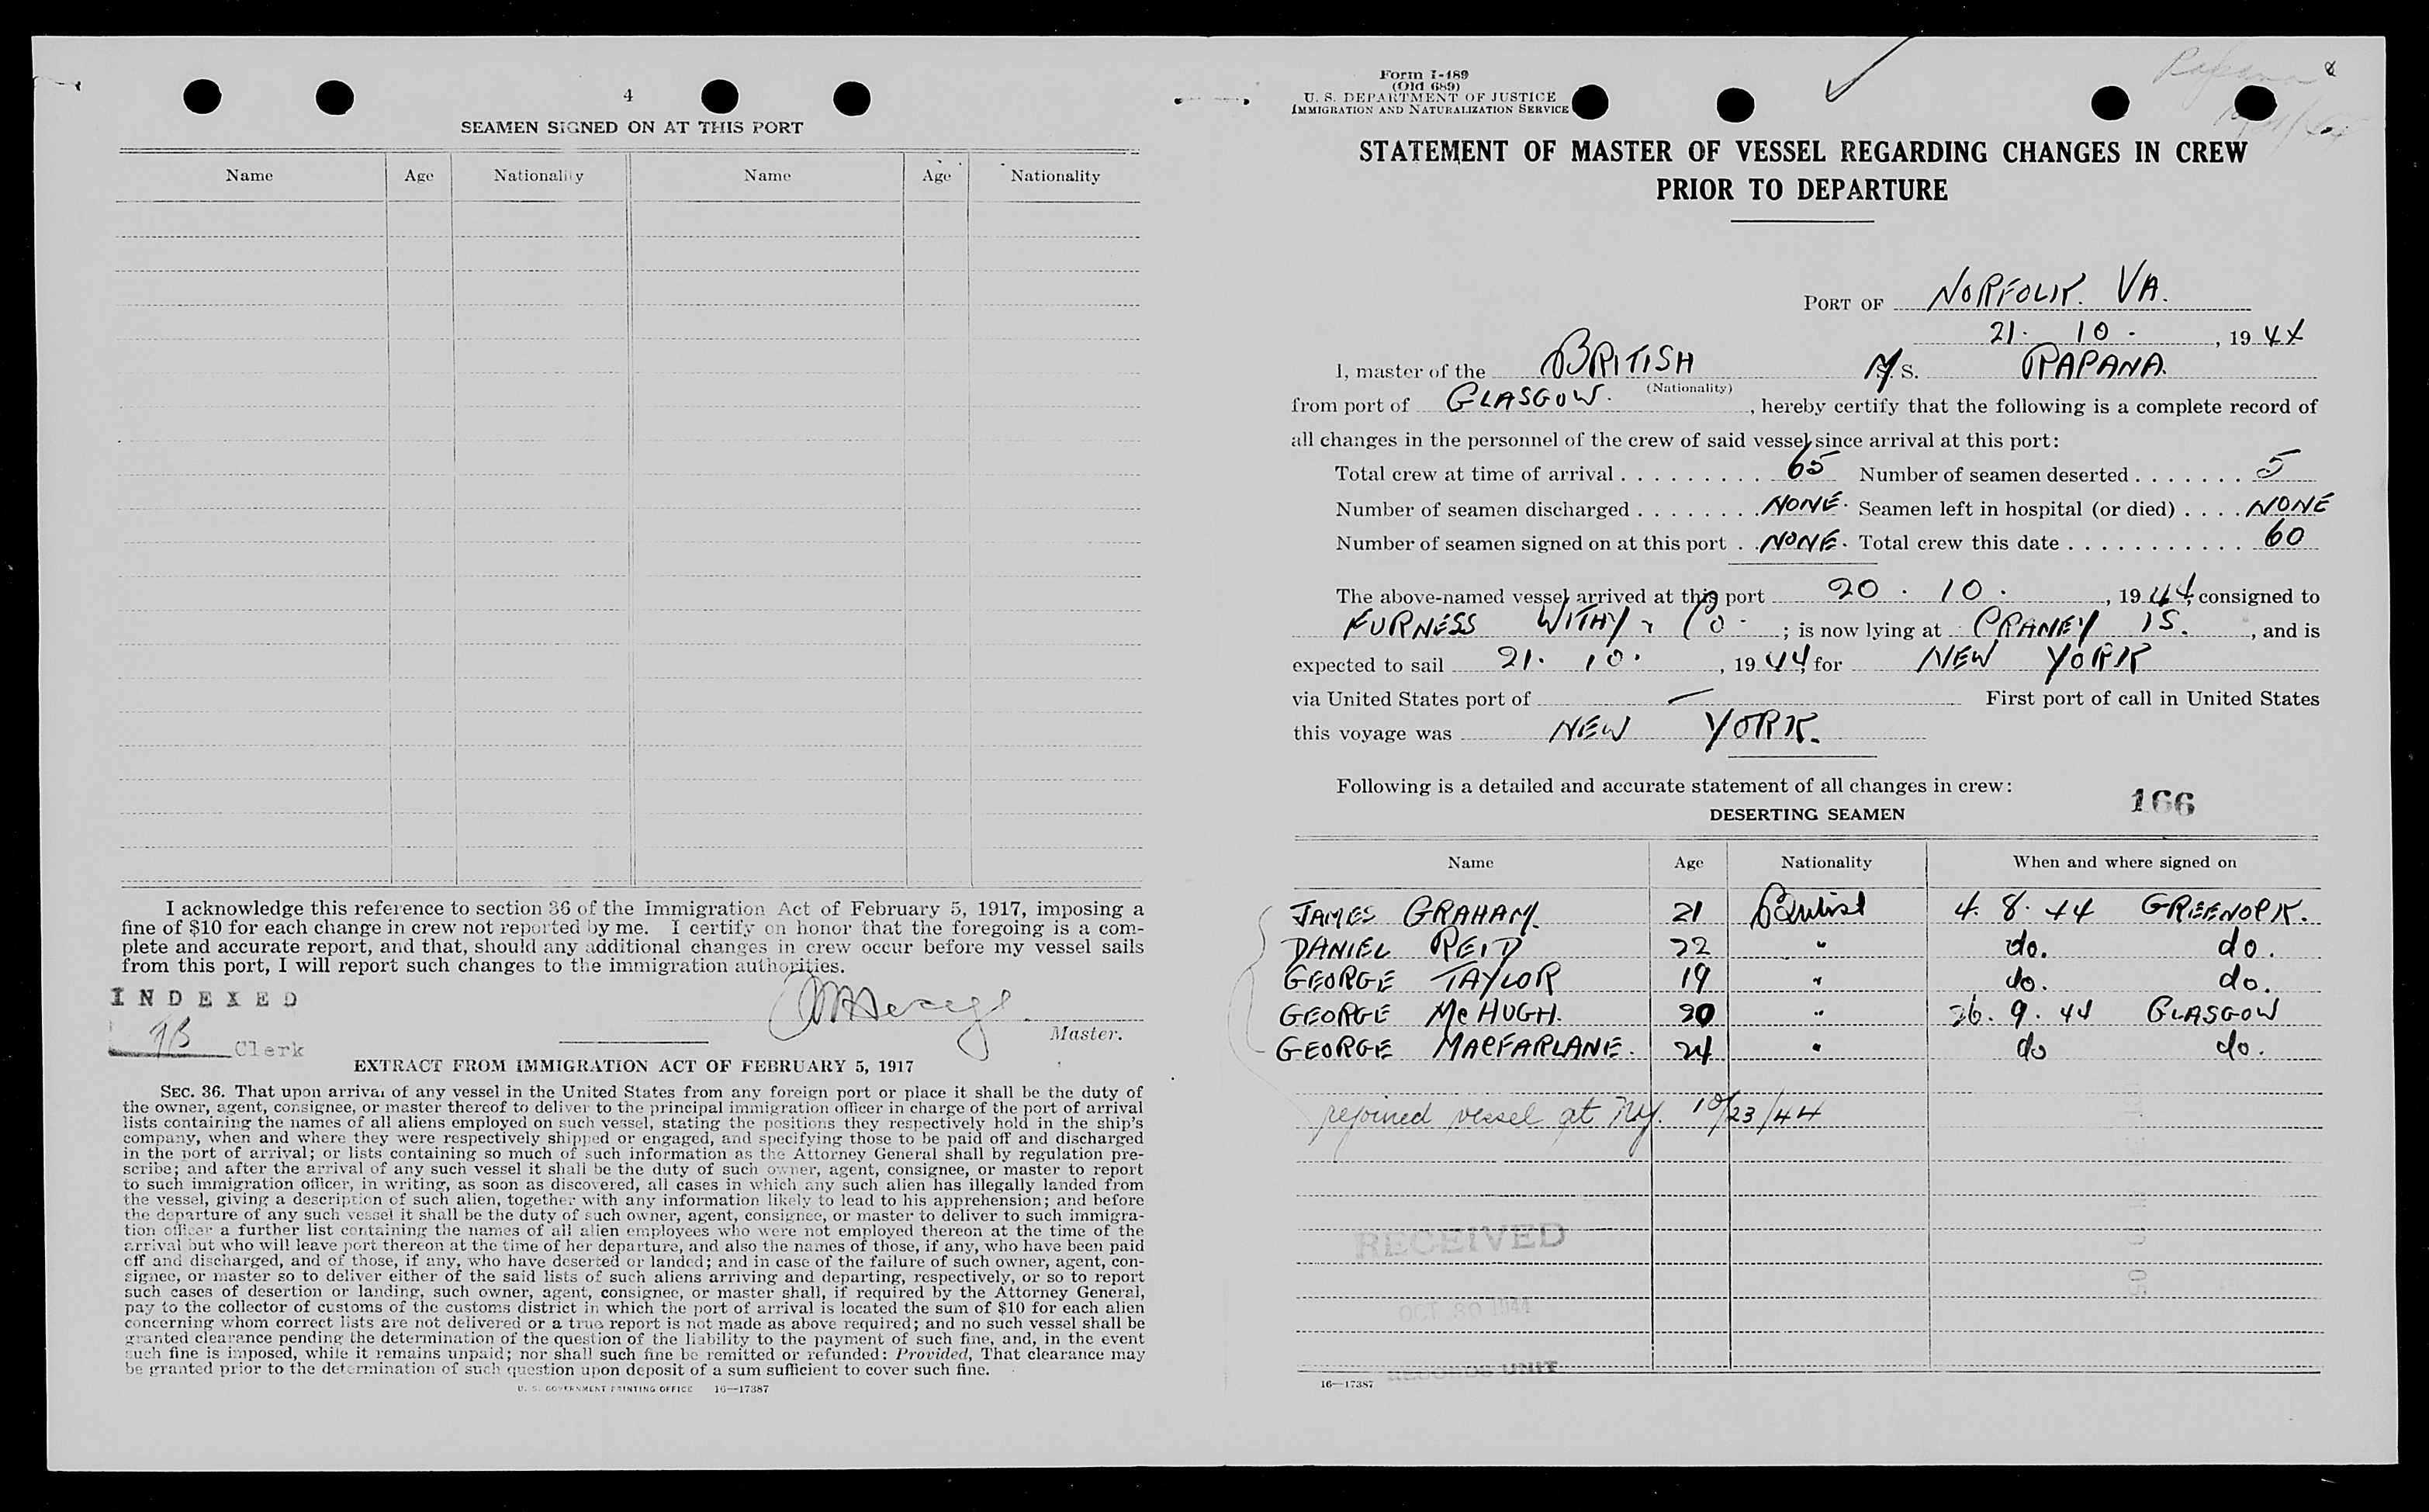 4
SEAMEN SIGNED ON AT THIS PORT
Name Age Nationality Name Age Nationality
I acknowledge this reference to section 36 of the Immigration Act of February 5, 1917, imposing a
fine of $10 for each change in crew not reported by me. I certify on honor that the foregoing is a com-
plete and accurate report, and that, should any additional changes in crew occur before my vessel sails
from this port, I will report such changes to the immigration authorities.
INDEXED
Master.
Clerk
EXTRACT FROM IMMIGRATION ACT OF FEBRUARY 5, 1917
SEC. 36. That upon arrival of any vessel in the United States from any foreign port or place it shall be the duty of
the owner, agent, consignee, or master thereof to deliver to the principal immigration officer in charge of the port of arrival
lists containing the names of all aliens employed on such vessel, stating the positions they respectively hold in the ship's
company, when and where they were respectively shipped or engaged, and specifying those to be paid off and discharged
in the port of arrival; or lists containing so much of such information as the Attorney General shall by regulation pre-
scribe; and after the arrival of any such vessel it shall be the duty of such owner, agent, consignee, or master to report
to such immigration officer, in writing, as soon as discovered, all cases in which any such alien has illegally landed from
the vessel, giving a description of such alien, together with any information likely to lead to his apprehension; and before
the departure of any such vessel it shall be the duty of such owner, agent, consignee, or master to deliver to such immigra-
tion officer a further list containing the names of all alien employees who were not employed thereon at the time of the
arrival but who will leave port thereon at the time of her departure, and also the names of those, if any, who have been paid
off and discharged, and of those, if any, who have deserted or landed; and in case of the failure of such owner, agent, con-
signee, or master so to deliver either of the said lists of such aliens arriving and departing, respectively, or so to report
such cases of desertion or landing, such owner, agent, consignee, or master shall, if required by the Attorney General,
pay to the collector of customs of the customs district in which the port of arrival is located the sum of $10 for each alien
concerning whom correct lists are not delivered or a true report is not made as above required; and no such vessel shall be
granted clearance pending the determination of the question of the liability to the payment of such fine, and, in the event
such fine is imposed, while it remains unpaid; nor shall such fine be remitted or refunded: Provided, That clearance may
be granted prior to the determination of such question upon deposit of a sum sufficient to cover such fine.
U. S. GOVERNMENT PRINTING OFFICE 16—17387
Form I-489
(Old 689)
U. S. DEPARTMENT OF JUSTICE
IMMIGRATION AND NATURALIZATION SERVICE
STATEMENT OF MASTER OF VESSEL REGARDING CHANGES IN CREW
PRIOR TO DEPARTURE
PORT OF NORFOLK. VA.
21. 10. , 1944
I, master of the BRITISH M S. PAPANA.
(Nationality)
from port of GLASGOW. , hereby certify that the following is a complete record of
all changes in the personnel of the crew of said vessel since arrival at this port:
Total crew at time of arrival . . . . . . . . . . 65 Number of seamen deserted . . . . . . . 5
Number of seamen discharged . . . . . . . . NONE. Seamen left in hospital (or died) . . . . NONE
Number of seamen signed on at this port . . NONE. Total crew this date . . . . . . . . . . . 60
The above-named vessel arrived at this port 20 . 10 . , 1944, consigned to
FURNESS WITHY & Co. ; is now lying at CRANEY IS. , and is
expected to sail 21. 10. , 1944, for NEW YORK
via United States port of — First port of call in United States
this voyage was NEW YORK.
Following is a detailed and accurate statement of all changes in crew:
166
DESERTING SEAMEN
Name Age Nationality When and where signed on
JAMES GRAHAM. 21 British 4. 8. 44 GREENOCK.
DANIEL REID 22 " do. do.
GEORGE TAYLOR 19 " do. do.
GEORGE McHUGH. 20 " 26. 9. 44 GLASGOW
GEORGE MACFARLANE. 24 " do do.
rejoined vessel at NY. 10/23/44
RECEIVED
OCT 30 1944
RECORDS UNIT
16—17387